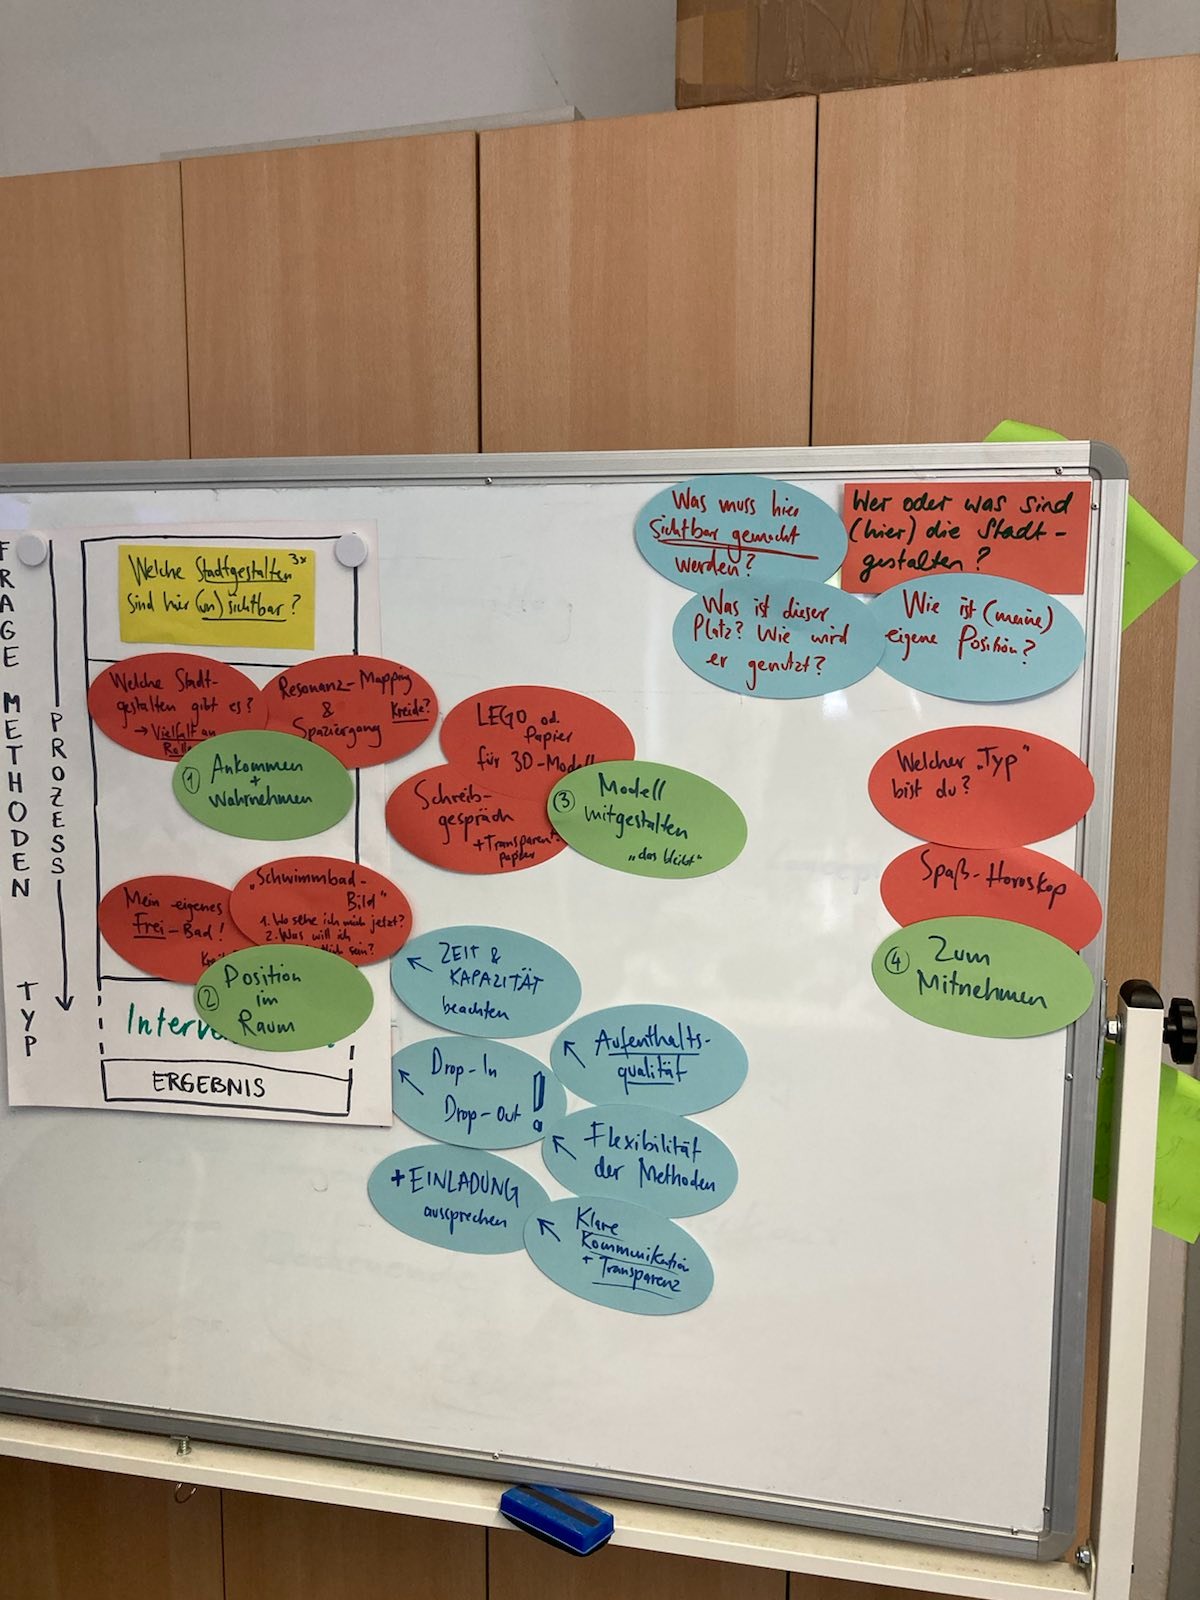 FRAGE
METHODEN
TYP
PROZESS
Welche Stadtgestalten 3x
sind hier (un)sichtbar?
Welche Stadt-
gestalten gibt es?
→ Vielfalt an
Resonanz-Mapping
& Kreide?
Spaziergang
① Ankommen
+
Wahrnehmen
Mein eigenes
Frei-Bad!
„Schwimmbad-
Bild"
1. Wo sehe ich mich jetzt?
2. Was will ich
sein?
② Position
im
Raum
ERGEBNIS
LEGO od.
Papier
für 3D-Modell
Schreib-
gespräch
+Transparent-
papier
③ Modell
mitgestalten
„das bleibt"
ZEIT &
KAPAZITÄT
beachten
Aufenthalts-
qualität
Drop-In
Drop-Out !
Flexibilität
der Methoden
+ EINLADUNG
aussprechen
Klare
Kommunikation
+ Transparenz
Was muss hier
Sichtbar gemacht
werden?
Wer oder was sind
(hier) die Stadt-
gestalten?
Was ist dieser
Platz? Wie wird
er genutzt?
Wie ist (meine)
eigene Position?
Welcher „Typ"
bist du?
Spaß-Horoskop
④ Zum
Mitnehmen